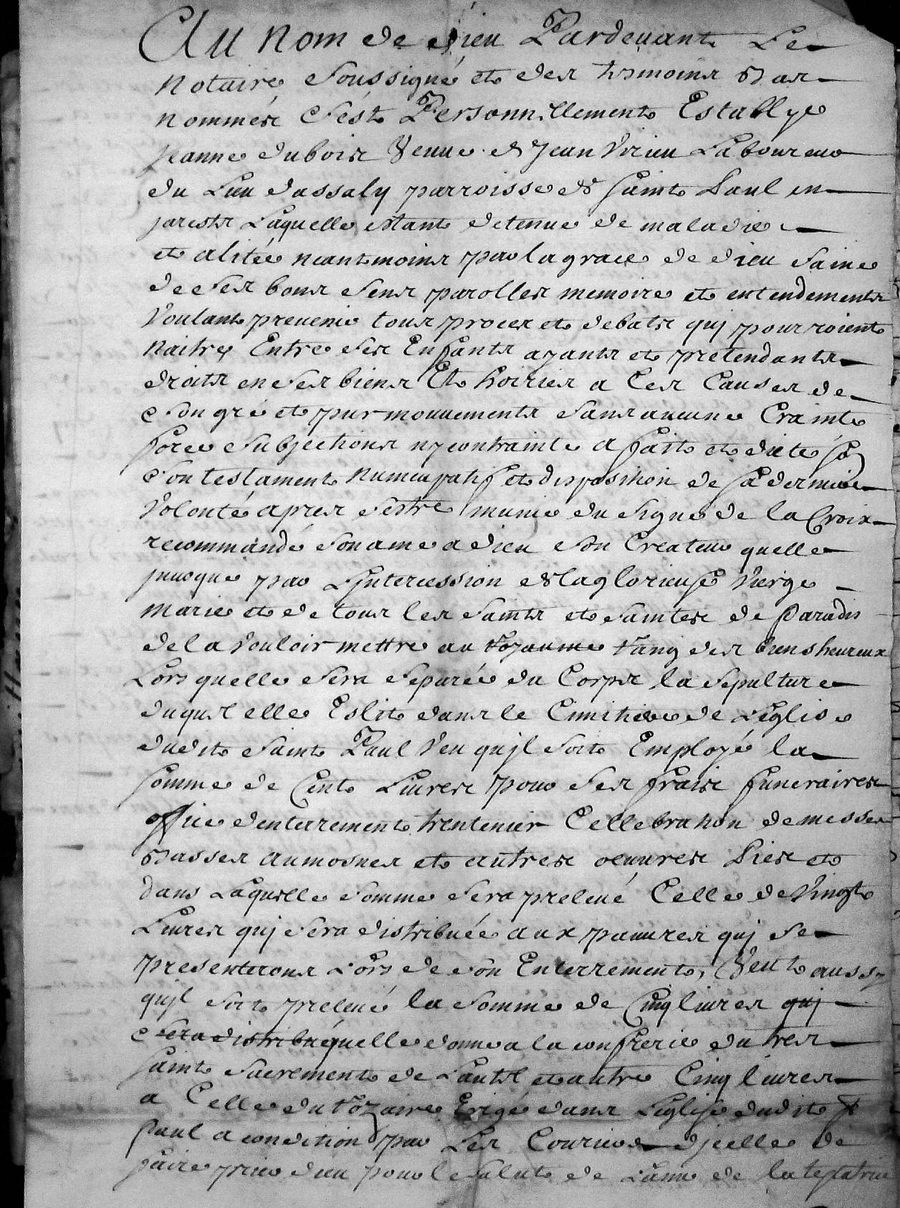 Au nom de dieu Pardevant Le
notaire soussigné et des tesmoins bas
nommés s'est Personnellement Establye
jeanne dubois veuve de jean virieu Laboureur
du Lieu dassaly parroisse de saint Paul en
jarests Laquelle estant detenue de maladie
et alitée neantmoins par la grace de dieu saine
de ses bons sens parolles memoire et entendements
voulant prevenir tous proces et debats quj pourroient
naitre Entre ses Enfants ayants et pretendants
droits en ses biens Et hoiries a Ces Causes de
son gré et pur mouvements sans aucune Crainte
force subjections ny contrainte a fait et dicté
son testament nuncupatif et disposition de sa derniere
volonté apres s'estre munie du signe de la Croix
recommandé son ame a dieu son Createur quelle
jnvoque par L'Intercession de la glorieuse vierge
marie et de tous les saints et saintes de Paradis
de la vouloir mettre au royaume rang des biensheureux
Lors quelle sera separée du Corps la sepulture
duquel elle Eslit dans le Cimitiere de L'eglise
dudit saint Paul veu qujl soit Employé la
somme de Cent Livres pour ses frais funeraires
office denterrement trentenier Cellebration de messes
basses aumosnes et autres oeuvres Pies et
dans Laquelle somme sera prelevé Celle de vingt
Livres quj sera distribuée aux pauvres quj se
presenterons Lors de son Enterrement, Veut aussy
qujl soit prelevé la somme de Cinq livres quj
sera distribué quelle donne a la confrerie du tres
saint sacrement de L'autel et autre Cinq livres
a Celle du rozaire Erigé dans L'eglise dudit st
Paul a condition par Les Couriers djcelle de
faire prier dieu pour le salut de L'ame de la testatrice